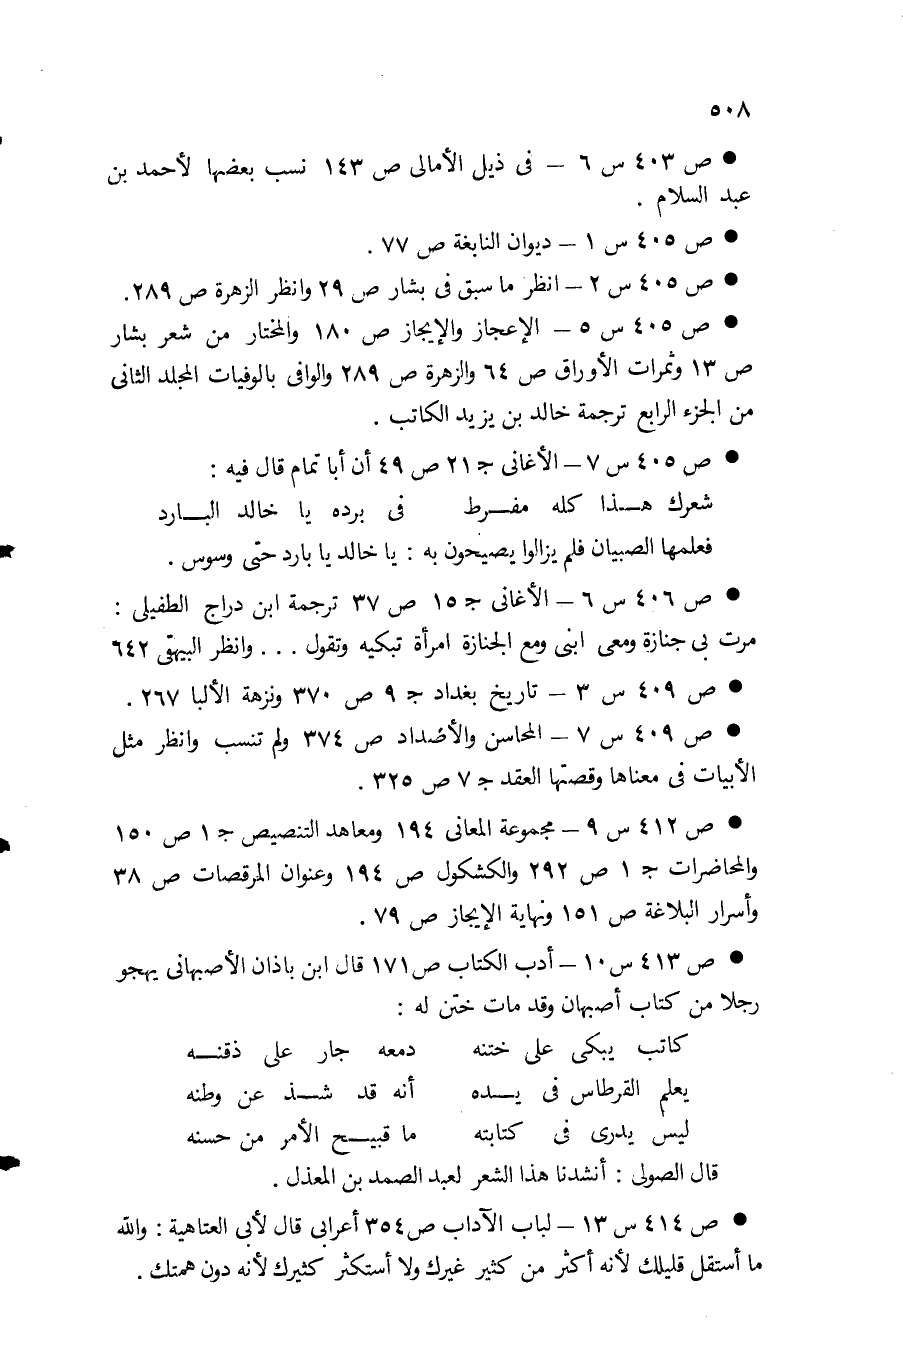 ٥٠٨
● ص ٤٠٣ س ٦ – فى ذيل الأمالى ص ١٤٣ نسب بعضها لأحمد بن
عبد السلام .
● ص ٤٠٥ س ١ – ديوان النابغة ص ٧٧ .
● ص ٤٠٥ س ٢ – انظر ما سبق فى بشار ص ٢٩ وانظر الزهرة ص ٢٨٩.
● ص ٤٠٥ س ٥ – الإعجاز والإيجاز ص ١٨٠ والمختار من شعر بشار
ص ١٣ وثمرات الأوراق ص ٦٤ والزهرة ص ٢٨٩ والوافى بالوفيات المجلد الثانى
من الجزء الرابع ترجمة خالد بن يزيد الكاتب .
● ص ٤٠٥ س ٧ – الأغانى ج ٢١ ص ٤٩ أن أبا تمام قال فيه :
شعرك هــذا كله مفــرط فى برده يا خالد البــارد
فعلمها الصبيان فلم يزالوا يصيحون به : يا خالد يا بارد حتى وسوس .
● ص ٤٠٦ س ٦ – الأغانى ج ١٥ ص ٣٧ ترجمة ابن دراج الطفيلى :
مرت بى جنازة ومعى ابنى ومع الجنازة امرأة تبكيه وتقول . . . وانظر البيهقى ٦٤٢
● ص ٤٠٩ س ٣ – تاريخ بغداد ج ٩ ص ٣٧٠ ونزهة الألبا ٢٦٧ .
● ص ٤٠٩ س ٧ – المحاسن والأضداد ص ٣٧٤ ولم تنسب وانظر مثل
الأبيات فى معناها وقصتها العقد ج ٧ ص ٣٢٥ .
● ص ٤١٢ س ٩ – مجموعة المعانى ١٩٤ ومعاهد التنصيص ج ١ ص ١٥٠
والمحاضرات ج ١ ص ٢٩٢ والكشكول ص ١٩٤ وعنوان المرقصات ص ٣٨
وأسرار البلاغة ص ١٥١ ونهاية الإيجاز ص ٧٩ .
● ص ٤١٣ س ١٠ – أدب الكتاب ص ١٧١ قال ابن باذان الأصبهانى يهجو
رجلا من كتاب أصبهان وقد مات ختن له :
كاتب يبكى على ختنه دمعه جار على ذقنــه
يعلم القرطاس فى يــده أنه قد شــذ عن وطنه
ليس يدرى فى كتابته ما قبيــح الأمر من حسنه
قال الصولى : أنشدنا هذا الشعر لعبد الصمد بن المعذل .
● ص ٤١٤ س ١٣ – لباب الآداب ص ٣٥٤ أعرابى قال لأبى العتاهية : والله
ما أستقل قليلك لأنه أكثر من كثير غيرك ولا أستكثر كثيرك لأنه دون همتك .